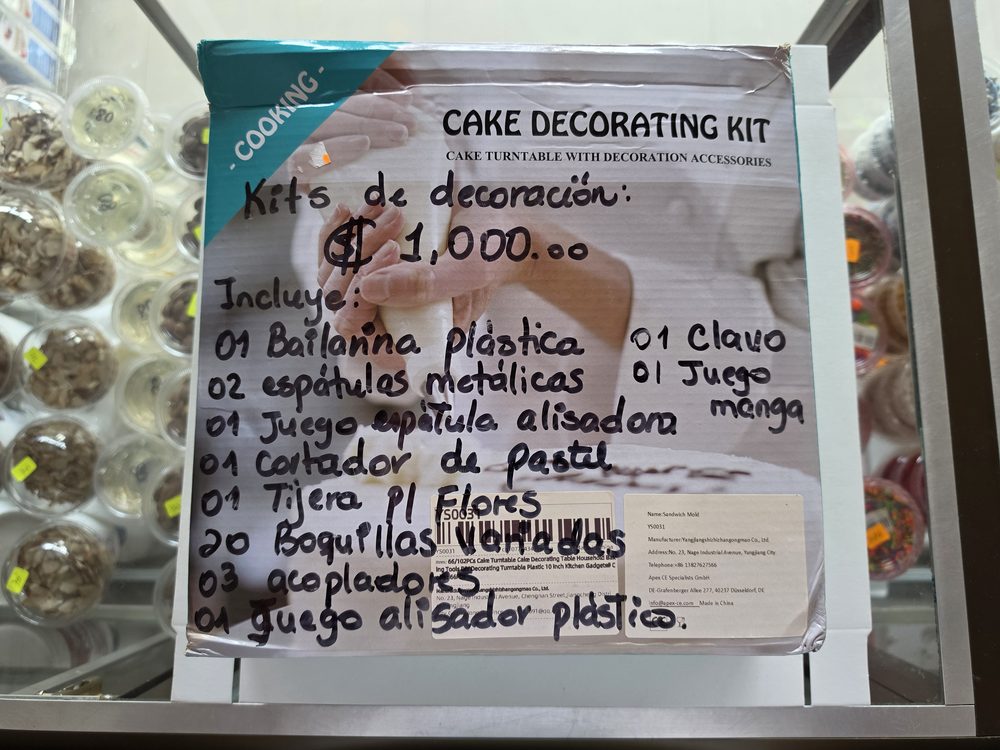 - COOKING -
CAKE DECORATING KIT
CAKE TURNTABLE WITH DECORATION ACCESSORIES
Kits de decoración:
C$ 1,000.00
Incluye:
01 Bailarina plástica
02 espátulas metálicas
01 Juego espátula alisadora
01 Cortador de pastel
01 Tijera p/ Flores
20 Boquillas variadas
03 acopladores
01 Juego alisador plástico.
01 Clavo
01 Juego
manga
YS0031
YS0031
66/102PCs Cake Turntable Cake Decorating Table Household
ing Tools DIY Decorating Turntable Plastic 10 Inch Kitchen Gadgets
No. 23, Nage Industrial Avenue, Chengnan Street,
Name:Sandwich Mold
YS0031
Manufacturer:Yangjiangshizhizhangongmao Co., Ltd.
Address:No. 23, Nage Industrial Avenue, Yangjiang City.
Telephone:+86 13827627566
Apex CE Specialists GmbH
DE-Grafenberger Allee 277, 40237 Düsseldorf, DE
info@apex-ce.com Made in China